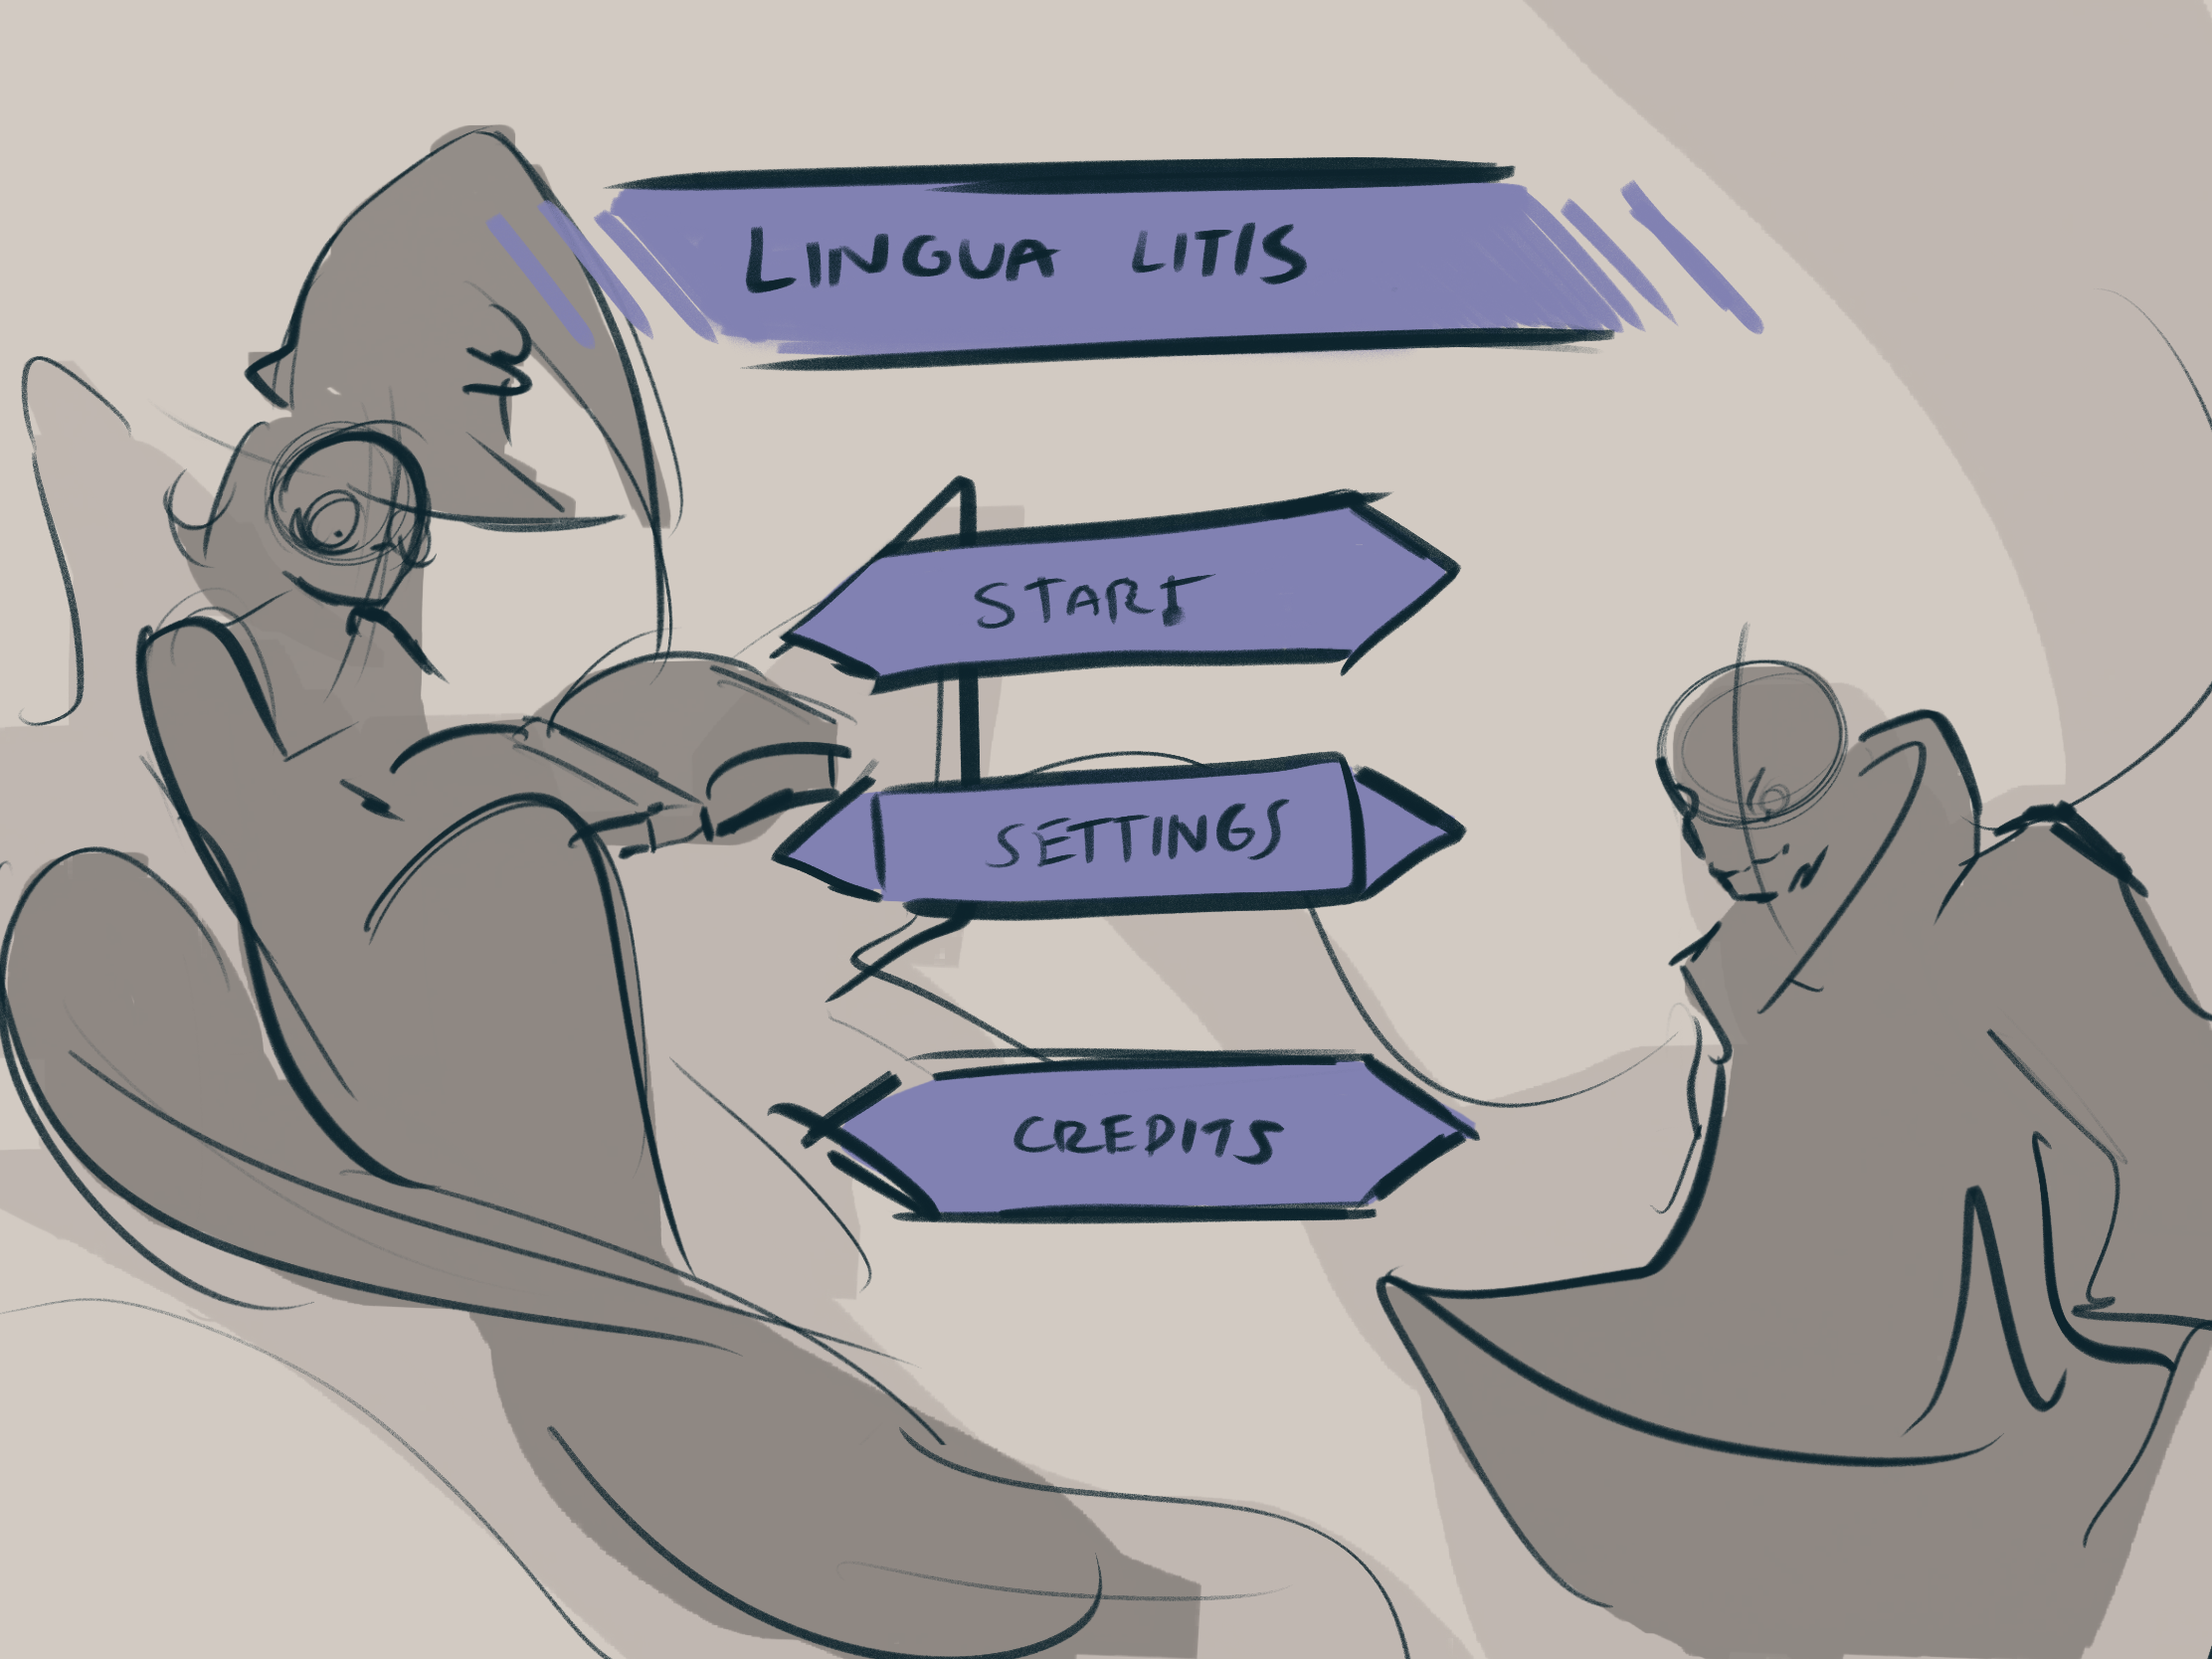 LINGUA LITIS
START
SETTINGS
CREDITS